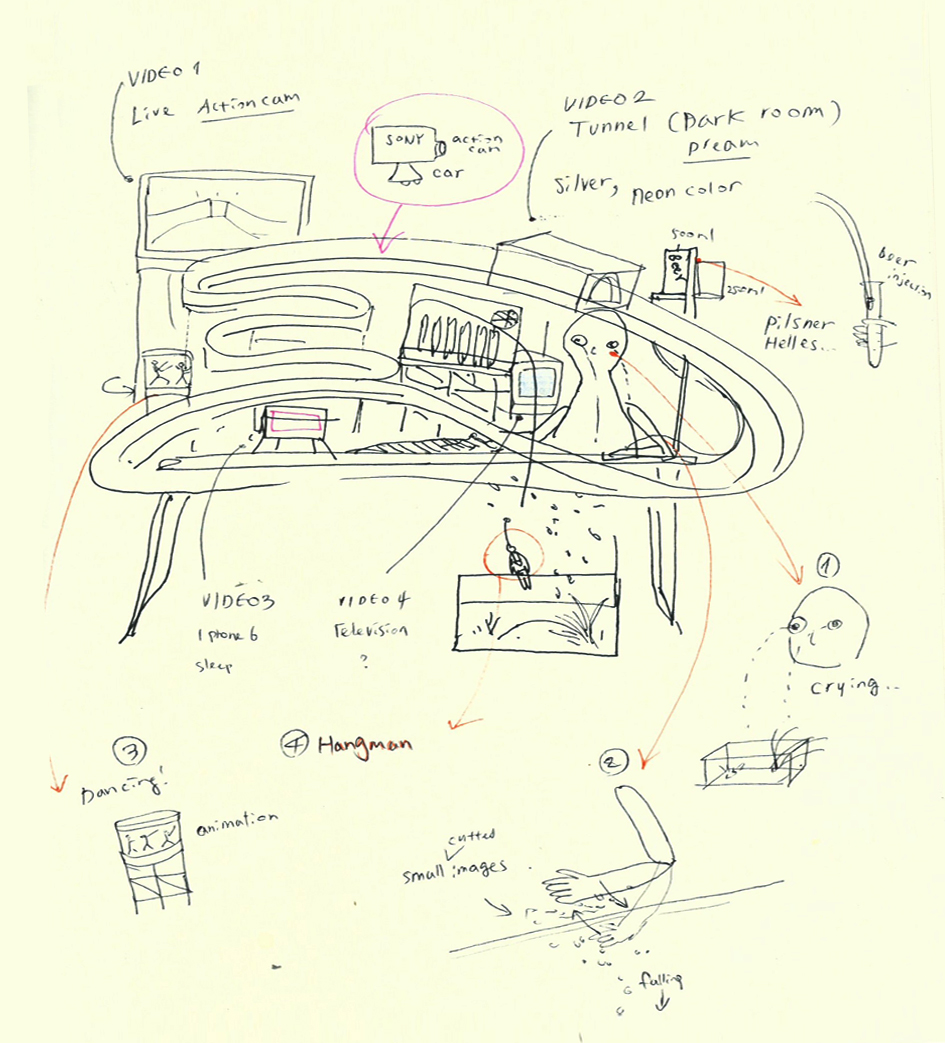 VIDEO 1
Live Action cam
SONY
action
cam
car
VIDEO 2
Tunnel (Dark room)
pream
silver, neon color
500ml
Beer
250ml
beer
injection
pilsner
Helles...
VIDEO3
iphone 6
sleep
VIDEO 4
Television
?
1
crying...
4 Hangman
3
Dancing!
animation
2
cutted
small images
falling